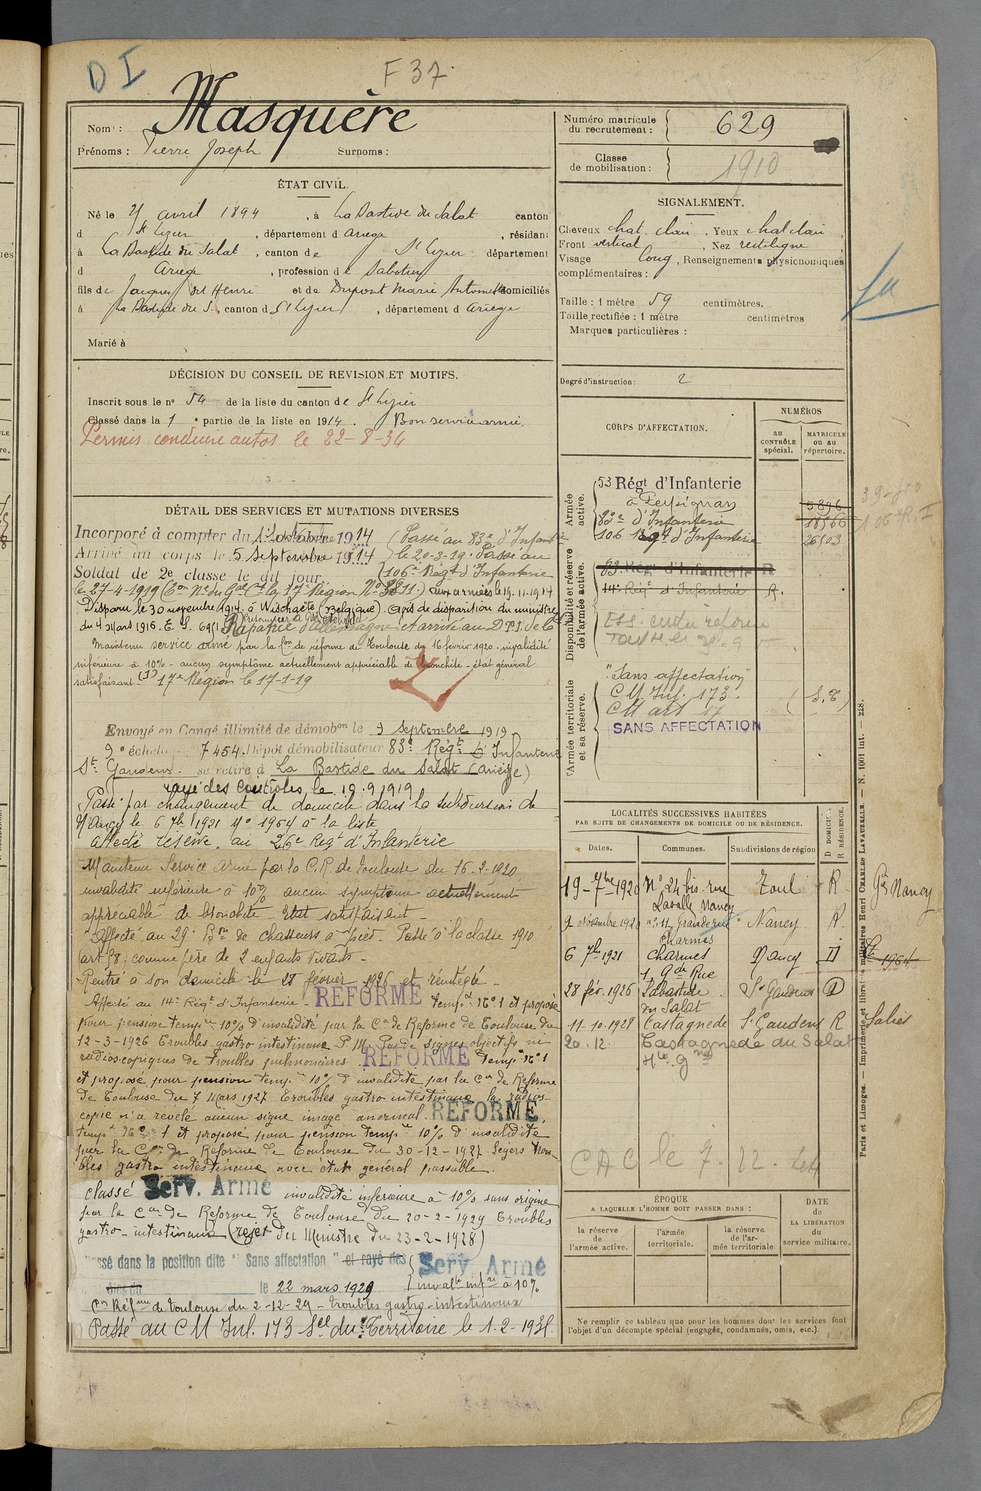 D I
F 37
Nom : Masquère
Prénoms : Pierre Joseph Surnoms :
Numéro matricule du recrutement : 629
Classe de mobilisation : 1910
ÉTAT CIVIL.
Né le avril 1894, à La Bastide du Salat canton
d St Lizier, département d Ariège, résidant
à La Bastide du Salat, canton de St Lizier département
d Ariège, profession de Sabotier
fils de Jacques Henri et de Dupont Marie Antoinette domiciliés
à La Bastide du S., canton d St Lizier, département d Ariège
Marié à
SIGNALEMENT.
Cheveux chat. clair, Yeux chat clair
Front vertical, Nez rectiligne
Visage long, Renseignements physionomiques
complémentaires :
Taille : 1 mètre 59 centimètres.
Taille rectifiée : 1 mètre centimètres
Marques particulières :
Degré d'instruction : 2
DÉCISION DU CONSEIL DE REVISION ET MOTIFS.
Inscrit sous le n° 54 de la liste du canton de St Lizier
Classé dans la 1e partie de la liste en 1914. Bon service armé.
Permis conduire autos le 22-8-34
DÉTAIL DES SERVICES ET MUTATIONS DIVERSES
Incorporé à compter du 1914 Passé au 83e d'Infanterie
Arrivé au corps le 5 Septembre 1914 le 20-3-19. Passé au
Soldat de 2e classe le dit jour 106e Régt d'Infanterie
le 27-4-1919 aux armées le 19.11.1914
Disparu le 30 novembre 1914 à Wischaete (Belgique) Avis de disparition du ministre
du 4 Mars 1915. Rapatrié d'Allemagne et arrivé au
Maintenu service armé par la Con de réforme de Toulouse du 16 février 1920. invalidité
inférieure à 10% - aucun symptôme actuellement appréciable de bronchite - état général
satisfaisant 17e Région le 17-1-19
Envoyé en Congé illimité de démobon le 9 Septembre 1919
9e échelon 7454. Dépôt démobilisateur 83e Régt d'Infanterie
St Gaudens. se retire à La Bastide du Salat (Ariège)
rayé des contrôles le 10.9.1919
Passé par changement de domicile dans la subdivision de
Nancy le 6 7bre 1921 No 1964 à la liste
Affecté réserve au 26e Régt d'Infanterie
Maintenu Service Armé par la C.R. de Toulouse du 16-2-1920
invalidité inférieure à 10% aucun symptôme actuellement
appréciable de bronchite - Etat satisfaisant -
Affecté au 29e Bon de chasseurs à pied - Passé à la classe 1910
(art 58) comme père de 2 enfants vivants -
Rentré à son domicile le 28 février 1926 et réintégré -
Affecté au 14e Régt d'Infanterie - RÉFORMÉ tempre No 1 et proposé
pour pension tempre 10% d'invalidité par la Con de Réforme de Toulouse du
12-3-1926 Troubles gastro intestinaux P.M. Pas de signes objectifs ni
radioscopiques de troubles pulmonaires. RÉFORMÉ tempre No 1
et proposé pour pension tempre 10% d'invalidité par la Con de Réforme
de Toulouse du 7 Mars 1927 Troubles gastro intestinaux la radios-
copie n'a révélé aucun signe image anormal. RÉFORMÉ
tempre No 1 et proposé pour pension tempre 10% d'invalidité
par la Con de Réforme de Toulouse du 30-12-1927 légers trou-
bles gastro intestinaux avec état général passable.
classé Serv. Armé invalidité inférieure à 10% sans origine
par la Con de Réforme de Toulouse du 20-2-1929 Troubles
gastro-intestinaux (rejet du Ministre du 23-2-1928)
ssé dans la position dite "Sans affectation" et rayé des
le 22 mars 1929 Serv. Armé invalté infre à 10%
Con Réfme de Toulouse du 2-12-29 - troubles gastro-intestinaux
Passé au C M Inf. 173 Sel du Territoire le 1-2-193
CORPS D'AFFECTATION.
NUMÉROS
au CONTRÔLE spécial.
MATRICULE ou au répertoire.
Armée active.
53 Régt d'Infanterie
à Perpignan
83e d'Infanterie
106 Régt d'Infanterie
5896
18566
Disponibilité et réserve de l'armée active.
83 Régt d'Infanterie R
14e Régt d'Infanterie R.
Armée territoriale et sa réserve.
"Sans affectation"
C M Inf. 173.
C M art 17
SANS AFFECTATION
LOCALITÉS SUCCESSIVES HABITÉES
PAR SUITE DE CHANGEMENTS DE DOMICILE OU DE RÉSIDENCE.
Dates. Communes. Subdivisions de région D DOMICILE. R RÉSIDENCE.
19-7bre-1920 No 24 bis rue Lavalle Nancy Toul R
9 novembre 1920 no 11 Grande rue Charmes Nancy R
6 7bre 1921 Charmes 1, Gde Rue Nancy D
28 fév. 1926 Labastide du Salat St Gaudens D
11-10-1928 Castagnède St Gaudens R Salies
20.12. Castagnède du Salat
Hte Gne
Nancy
1964
CAC le 7. 22.
ÉPOQUE
A LAQUELLE L'HOMME DOIT PASSER DANS :
la réserve de l'armée active.
l'armée territoriale.
la réserve de l'armée territoriale.
DATE de LA LIBÉRATION du service militaire.
Ne remplir ce tableau que pour les hommes dont les services font
l'objet d'un décompte spécial (engagés, condamnés, omis, etc.).
Paris et Limoges. — Imprimerie et librairie militaires Henri CHARLES-LAVAUZELLE. — N. 1001 int. — 218.